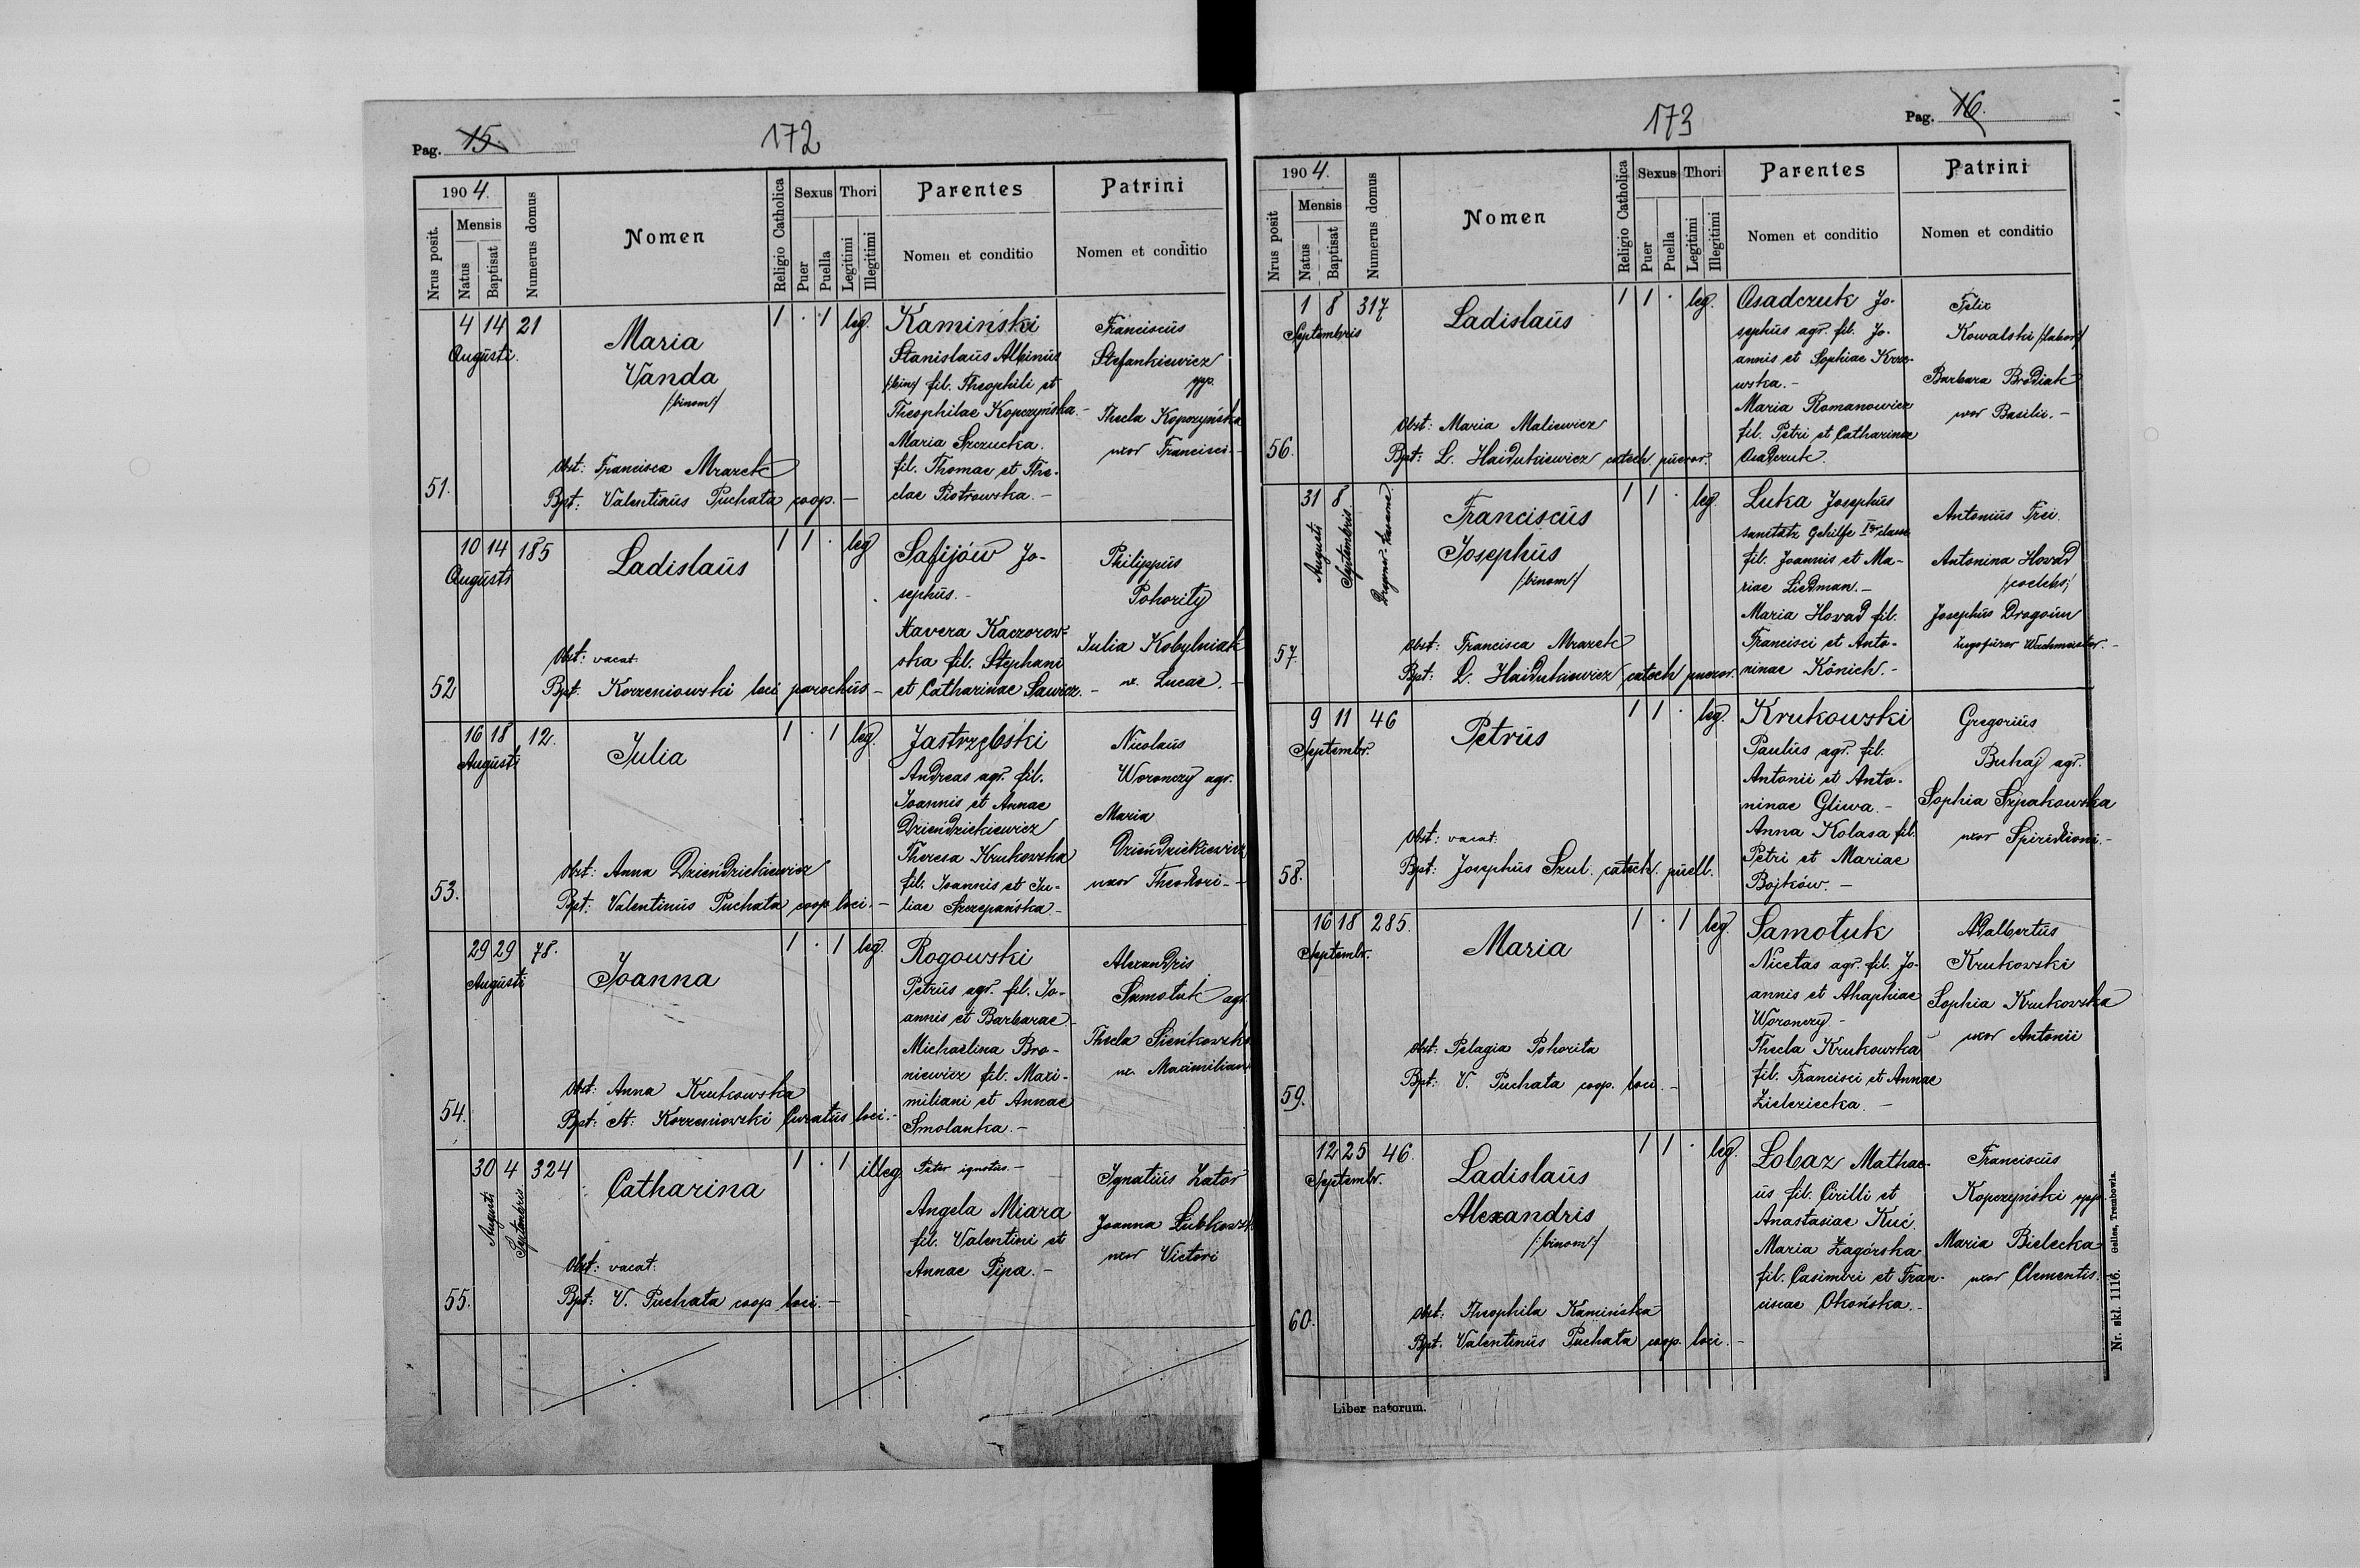 Pag. 15.
172
1904.
Nrus posit.
Mensis
Natus
Baptisat
Numerus domus
Nomen
Religio Catholica
Sexus
Puer
Puella
Thori
Legitimi
Illegitimi
Parentes
Nomen et conditio
Patrini
Nomen et conditio
51.
4 14 21
Augusti.
Maria
Vanda
/:binom:/
Obst: Francisca Mrazek
Bpt: Valentinus Puchata coop. —
1 . 1 leg.
Kamiński
Stanislaus Albinus
/:bin:/ fil. Theophili et
Theophilae Kopczyńska. -
Maria Szczucka.
fil. Thomae et The-
clae Piotrowska. -
Franciscus
Stefankiewicz
opp.
Thecla Kopczyńska
uxor Francisci. -
52
10 14 185
Augusti
Ladislaus
Obst: vacat
Bpt. Korzeniowski loci parochus -
1 1 . leg
Safijów Jo-
sephus. -
Xavera Kaczorow-
ska fil. Stephani
et Catharinae Sawicz. -
Philippus
Pohority
Julia Kobylniak
ux. Lucae. -
53.
16 18 12.
Augusti
Julia
Obst: Anna Dzieńdziekiewicz
Bpt: Valentinus Puchata coop loci. -
1 . 1 leg.
Jastrzębski
Andreas agr. fil.
Joannis et Annae
Dzieńdziekiewicz
Theresa Krukowska
fil. Joannis et Ju-
liae Szczepańska -
Nicolaus
Woronczy agr.
Maria
Dzieńdziekiewicz
uxor Theodori - -
54.
29 29 78.
Augusti
Joanna
Obst: Anna Krukowska
Bpt: St: Korzeniowski Curatus loci. -
1 . 1 leg.
Rogowski
Petrus agr. fil. Jo-
annis et Barbarae -
Michaelina Bro-
niewicz fil. Maxi-
miliani et Annae
Smolanka. -
Alexandris
Samotuk agr.
Thecla Sieńkowska
ux. Maximiliani
55.
30 4 324
Augusti
Septembris
Catharina
Obst: vacat.
Bpt: V. Puchata coop loci. -
1 . 1 illeg
Pater ignotus. -
Angela Miara
fil. Valentini et
Annae Pipa. -
Ignatius Zator
Joanna Lubkowska
uxor Victori
173
Pag. 16.
1904.
Nrus posit
Mensis
Natus
Baptisat
Numerus domus
Nomen
Religio Catholica
Sexus
Puer
Puella
Thori
Legitimi
Illegitimi
Parentes
Nomen et conditio
Patrini
Nomen et conditio
56.
1 8 317
Septembris
Ladislaus
Obst: Maria Maliewicz
Bpt: L. Haidukiewicz catech. pueror.
1 1 . leg.
Osadczuk Jo-
sephus agr. fil. Jo-
annis et Sophiae Krze-
wska. -
Maria Romanowicz
fil. Petri et Catharinae
Osadczuk.
Felix
Kowalski /:labor:/
Barbara Brodiak
uxor Basilii. -
57.
31 8
Augusti
Septembris
Franciscus
Josephus
/:binom:/
Obst: Francisca Mrazek
Bpt: L. Haidukiewicz catech pueror.
1 1 . leg.
Luka Josephus
sanitätz Gehilfe
fil. Joannis et Ma-
riae Liedman. -
Maria Howad fil.
Francisci et Anto-
ninae Könich. -
Antonius Frei.
Antonina Howad
Josephus Dragoun
Zugsfürer Wachmaister. -
58.
9 11 46
Septembr.
Petrus
Obst: vacat.
Bpt: Josephus Szul. catech. puell.
1 1 . leg.
Krukowski
Paulus agr. fil.
Antonii et Anto-
ninae Gliwa. -
Anna Kolasa fil.
Petri et Mariae
Bojków. -
Gregorius
Buhaj agr.
Sophia Szpakowska
uxor Spiridioni. -
59.
16 18 285.
Septembr.
Maria
Obst: Pelagia Pohorita
Bpt: V. Puchata coop. loci. -
1 . 1 leg.
Samotuk
Nicetas agr. fil. Jo-
annis et Ahaphiae
Woronczy -
Thecla Krukowska
fil. Francisci et Annae
Zieleziecka. -
Adalbertus
Krukowski
Sophia Krukowska
uxor Antonii
60.
12 25 46.
Septembr.
Ladislaus
Alexandris
/:binom:/
Obst: Theophila Kamińska
Bpt. Valentinus Puchata coop. loci. -
1 1 . leg.
Lobaz Mathae-
us fil. Cirilli et
Anastasiae Kuć.
Maria Zagórska
fil. Casimiri et Fran-
ciscae Okońska. -
Franciscus
Kopczyński opp
Maria Bielecka
uxor Clementis. -
Liber natorum.
Nr. skl. 1116. Gelles, Trembowla.